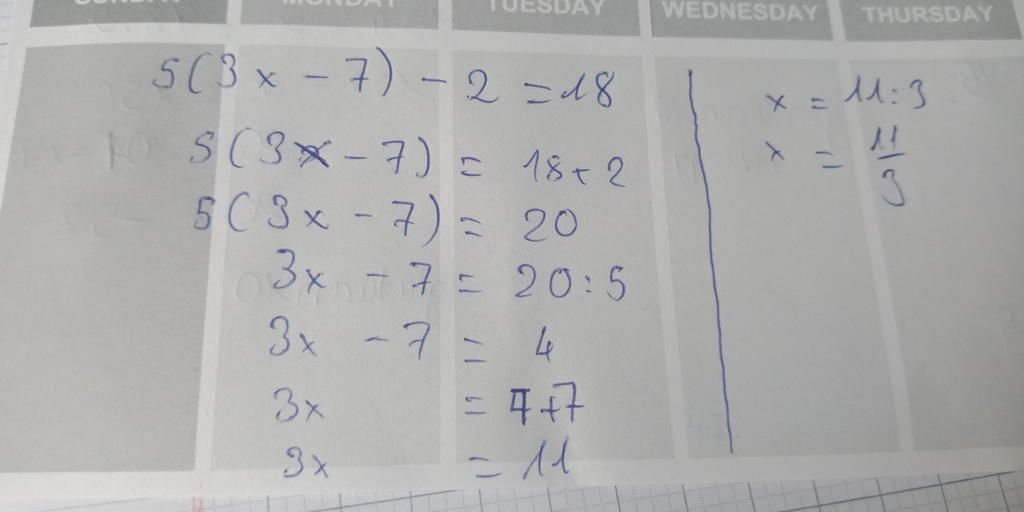 MONDAY TUESDAY WEDNESDAY THURSDAY
5(3x - 7) - 2 = 18
5(3x - 7) = 18 + 2
5(3x - 7) = 20
3x - 7 = 20 : 5
3x - 7 = 4
3x = 4+7
3x = 11
x = 11 : 3
x = 11/3